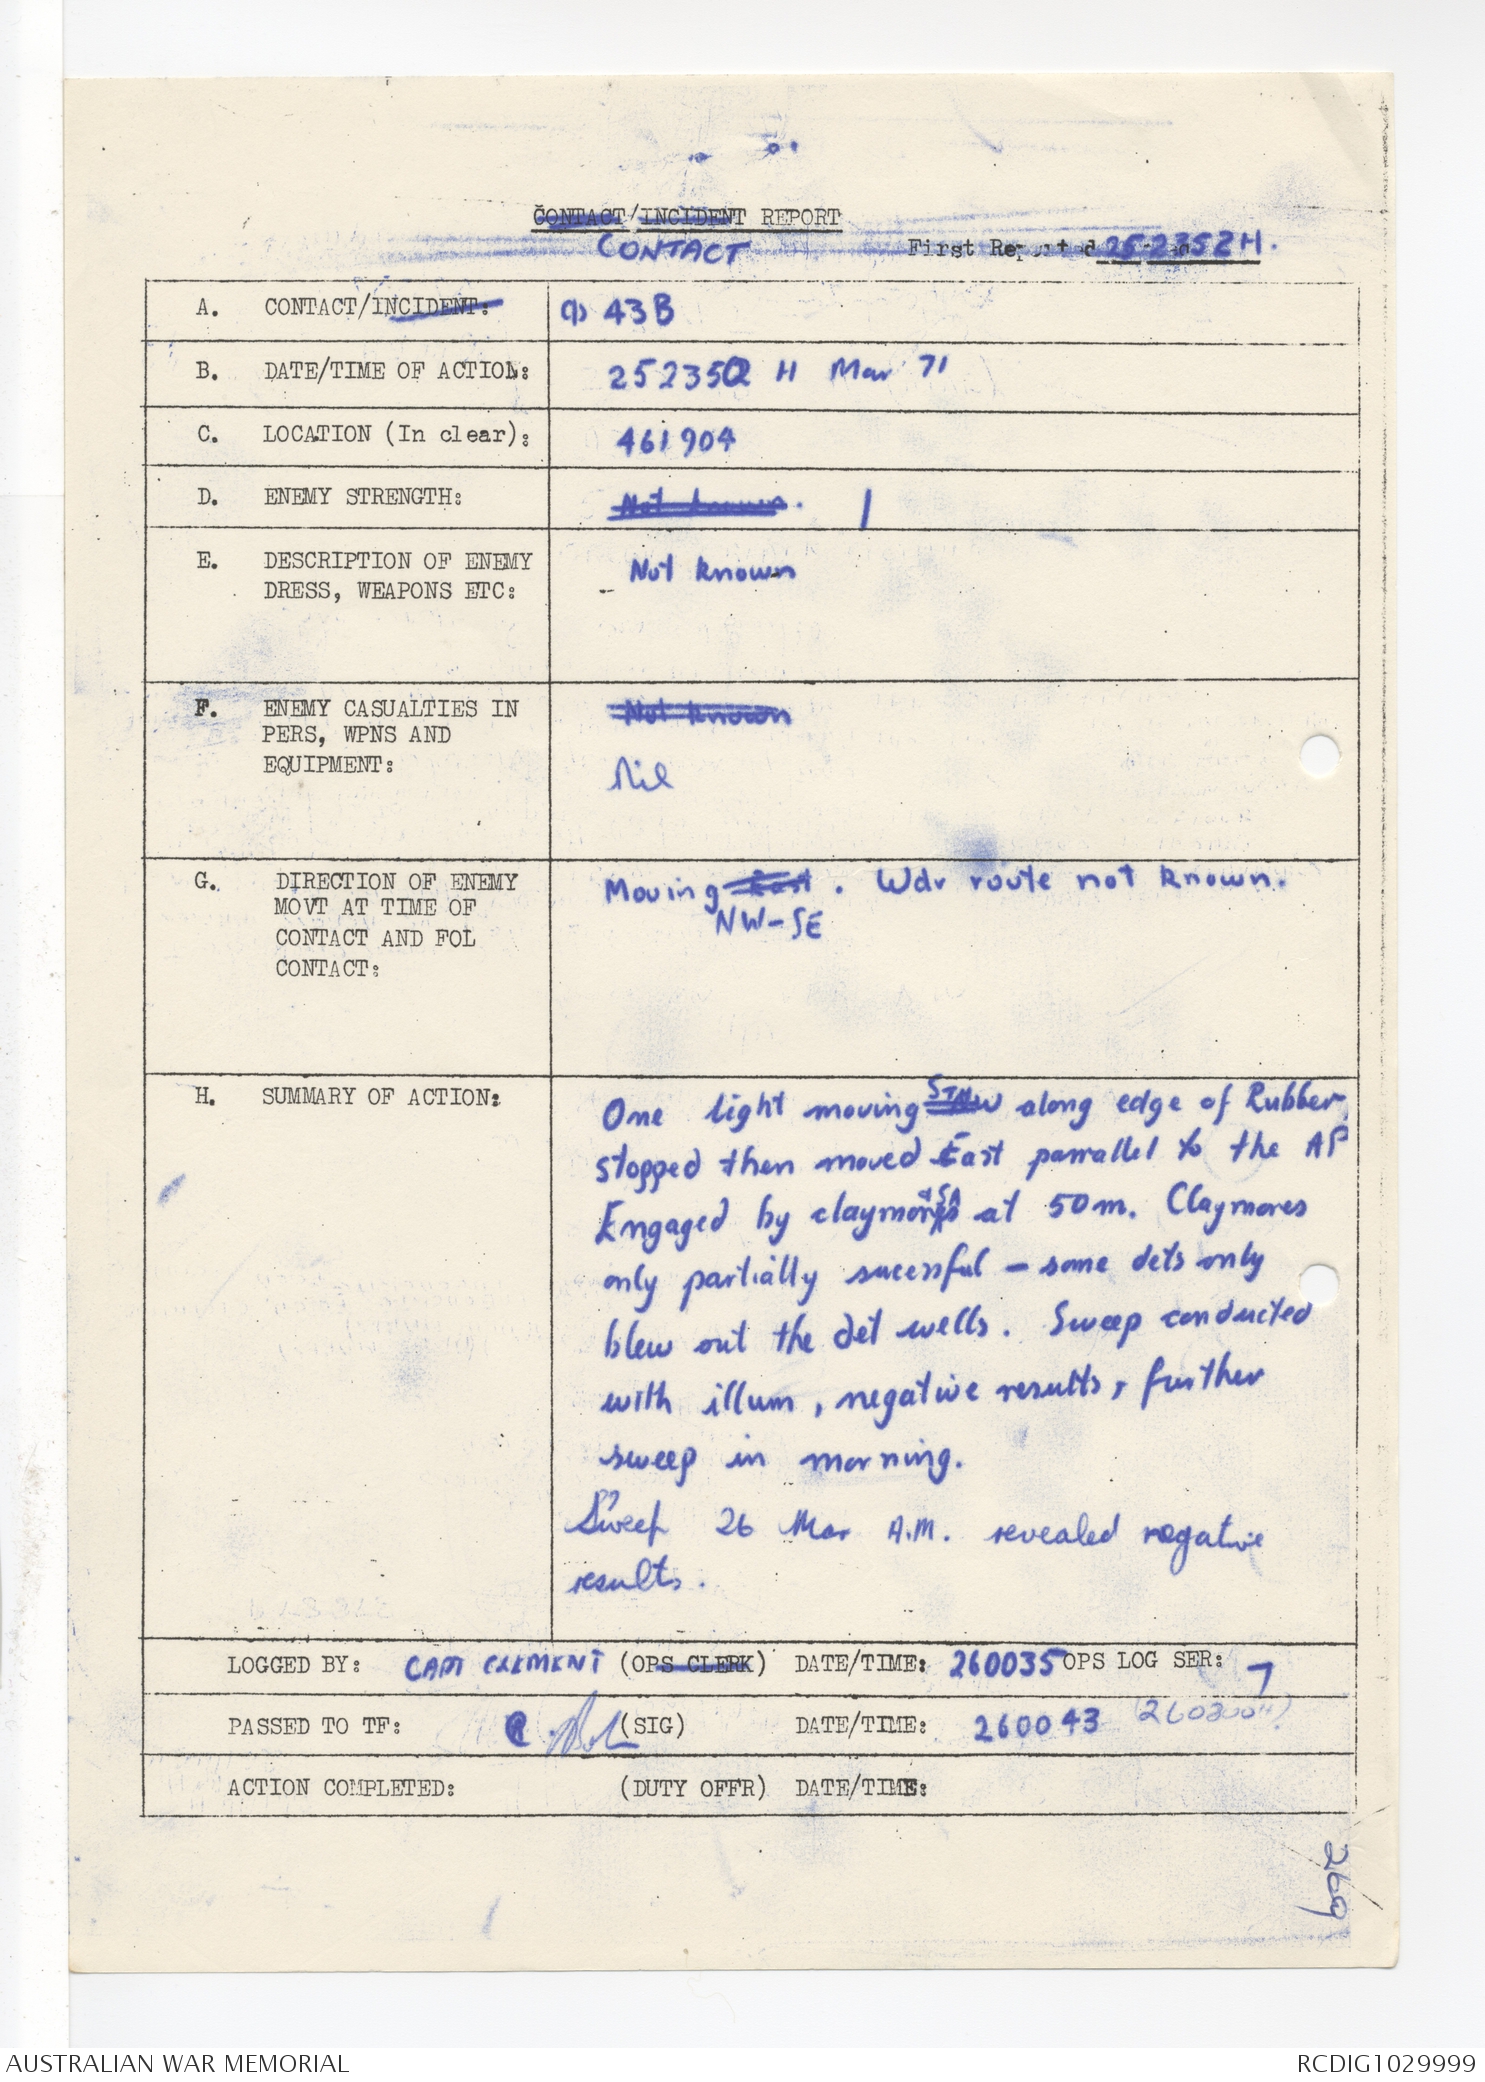 CONTACT/INCIDENT REPORT
CONTACT
First Reported 252352H.
A. CONTACT/INCIDENT: 43B
B. DATE/TIME OF ACTION: 252350 H Mar 71
C. LOCATION (In clear): 461904
D. ENEMY STRENGTH: Not known. 1
E. DESCRIPTION OF ENEMY
DRESS, WEAPONS ETC:
Not known
F. ENEMY CASUALTIES IN
PERS, WPNS AND
EQUIPMENT:
Not known
Nil
G. DIRECTION OF ENEMY
MOVT AT TIME OF
CONTACT AND FOL
CONTACT:
Moving East. Wdr route not known.
NW-SE
H. SUMMARY OF ACTION:
One light moving along edge of Rubber,
stopped then moved East parrallel to the AP
Engaged by claymores + SA at 50m. Claymores
only partially sucessful - some dets only
blew out the det wells. Sweep conducted
with illum, negative results, further
sweep in morning.
Sweep 26 Mar A.M. revealed negative
results.
LOGGED BY: CAPT CLEMENT (OPS CLERK) DATE/TIME: 260035 OPS LOG SER: 7
PASSED TO TF: (SIG) DATE/TIME: 260043
ACTION COMPLETED: (DUTY OFFR) DATE/TIME:
269
AUSTRALIAN WAR MEMORIAL
RCDIG1029999